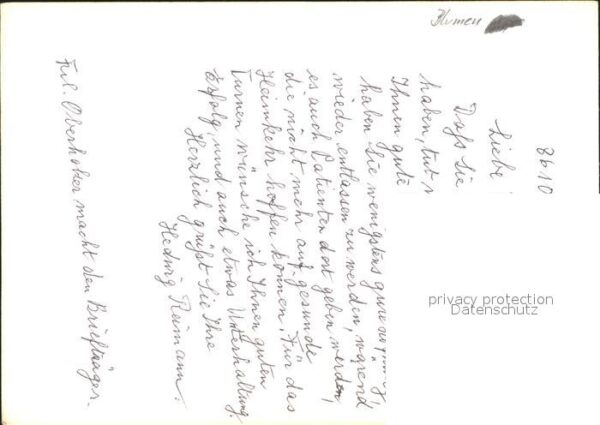 Blumen
8610
Liebe
Dass Sie
haben, tut
Ihnen gute
haben Sie wenigstens
wieder entlassen zu werden, während
es auch Patienten dort geben werden,
die nicht mehr auf gesunde
Heimkehr hoffen können. Für das
Turnen wünsche ich Ihnen guten
Erfolg, und auch etwas Unterhaltung.
Herzlich grüsst Sie Ihre
Hedwig Reimann.
Frl. Oberholzer macht den Briefträger.
privacy protection
Datenschutz